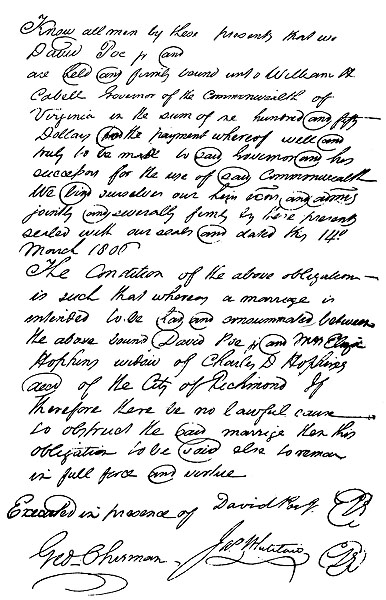 Know all men by these presents that we
David Poe jr and
are held and firmly bound unto William H
Cabell Governor of the Commonwealth of
Virginia in the sum of one hundred and fifty
Dollars for the payment whereof well and
truly to be made to said Governor and his
successors for the use of said Commonwealth
We bind ourselves our heirs and
jointly and severally firmly by these presents
sealed with our seals and dated this 14th
March 1806
The Condition of the above obligation
is such that whereas a marriage is
intended to be had and consummated between
the above bound David Poe jr and Mrs Eliza
Hopkins widow of Charles D Hopkins
decd of the City of Richmond If
therefore there be no lawful cause
to obstruct the said marriage then this
obligation to be void else to remain
in full force and virtue
Executed in presence of David Poe Jr.
Geo Sherman